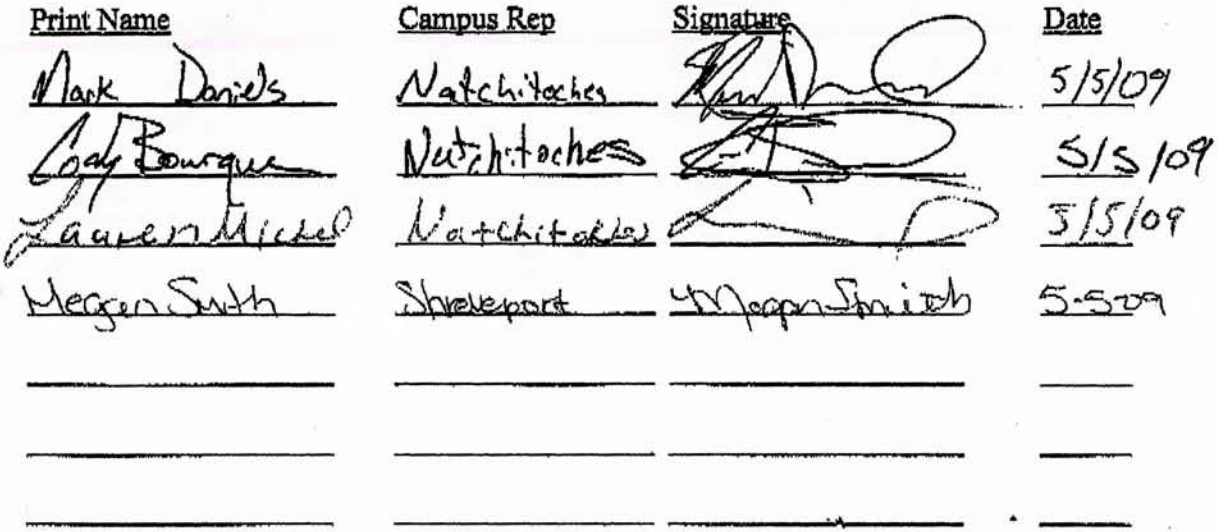 Print Name Campus Rep Signature Date
Mark Daniels Natchitoches 5/5/09
Cody Bourque Natchitoches 5/5/09
Lauren Michel Natchitoches 5/5/09
Megan Smith Shreveport Megan Smith 5-5-09